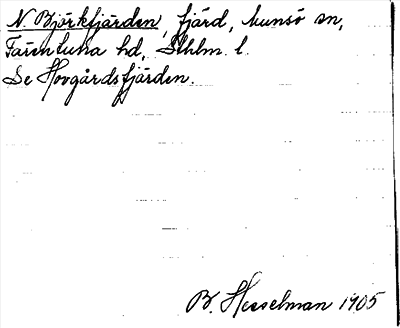 N. Björkfjärden, fjärd, Munsö sn,
Färentuna hd, Sthlm. l.
Se Hovgårdsfjärden.
B. Hesselman 1905